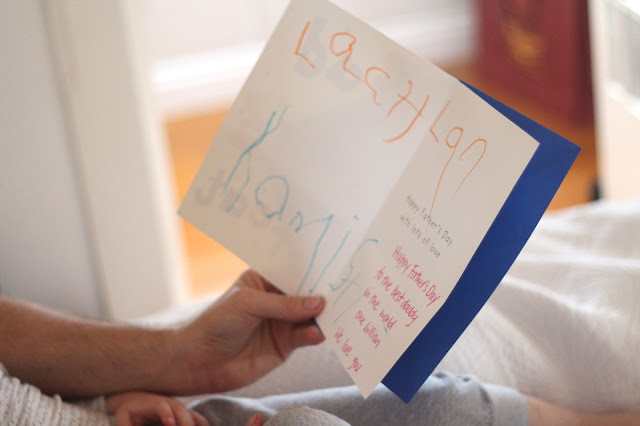 LacHLan
HamisH
Happy Father's Day
with lots of love
Happy Father's Day
to the best daddy
in the world
one billion
we love you